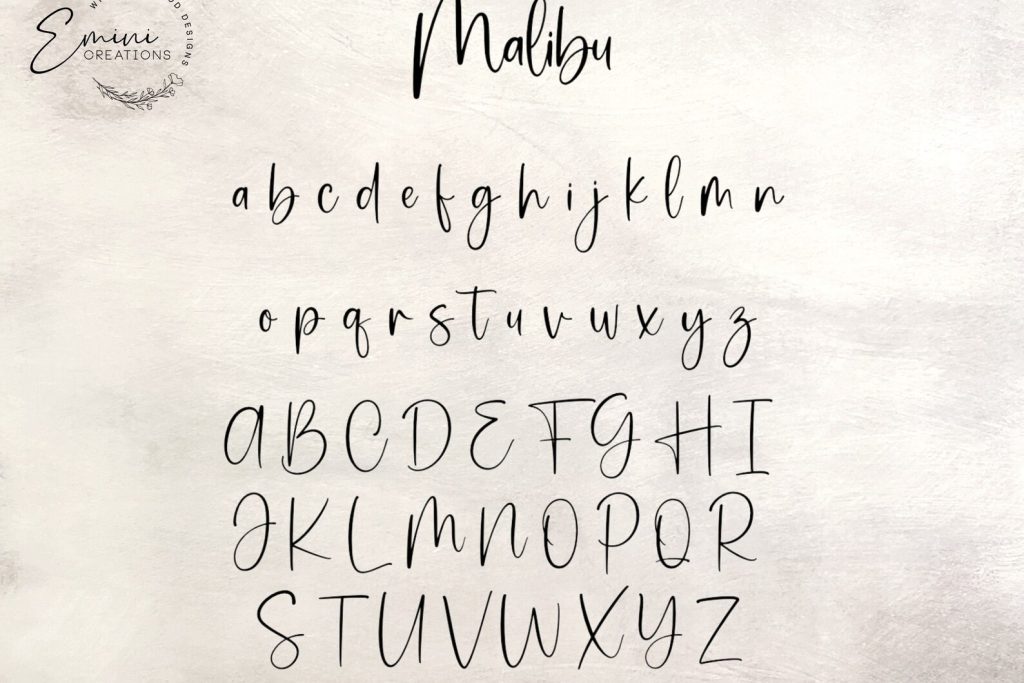 Malibu
Emini
CREATIONS
DESIGNS
a b c d e f g h i j k l m n
o p q r s t u v w x y z
A B C D E F G H I
J K L M N O P Q R
S T U V W X Y Z